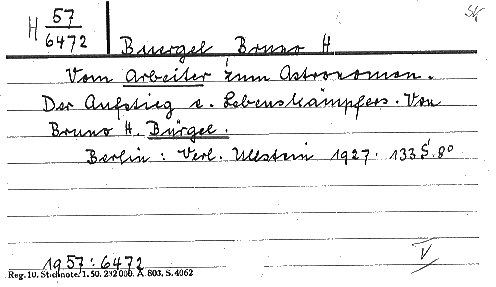 H 57
6472
Buergel Bruno H.
Vom Arbeiter zum Astronomen.
Der Aufstieg e. Lebenskämpfers. Von
Bruno H. Bürgel.
Berlin: Verl. Ullstein 1927. 133 S. 8°
V
1957:6472
Reg. 10. 1. 50. 232 000. A. 803, S. 4062